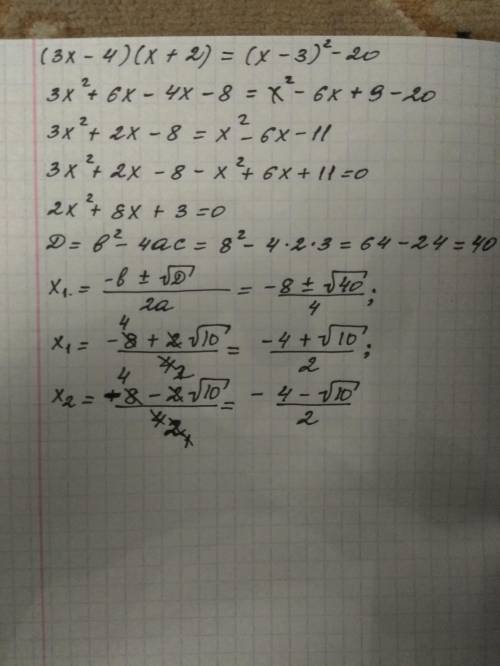 (3x - 4)(x + 2) = (x - 3)² - 20
3x² + 6x - 4x - 8 = x² - 6x + 9 - 20
3x² + 2x - 8 = x² - 6x - 11
3x² + 2x - 8 - x² + 6x + 11 = 0
2x² + 8x + 3 = 0
D = b² - 4ac = 8² - 4·2·3 = 64 - 24 = 40
x₁. = (-b ± √D)/2a = (-8 ± √40)/4;
x₁ = (-8 + 2√10)/4 = (-4 + √10)/2;
x₂ = (-8 - 2√10)/4 = - (4 - √10)/2